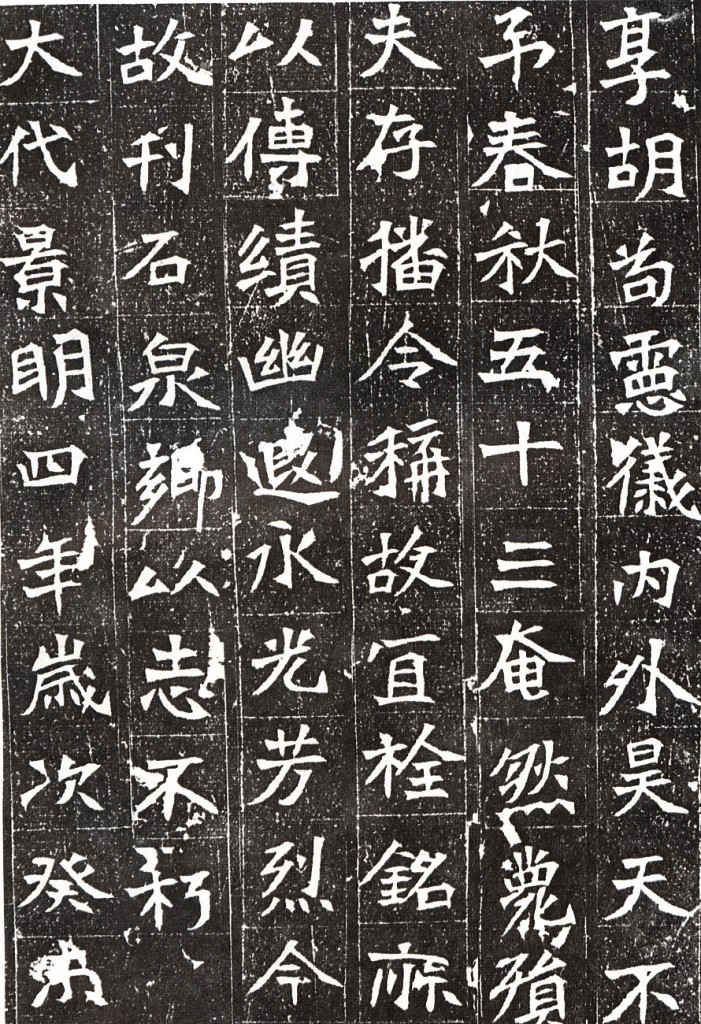 享胡苟憲儀内外昊天不
弔春秋五十三奄然薨殞
夫存播令稱故宜栓銘所
以傳績幽遐永光芳烈今
故刊石泉鄉以志不朽
大代景明四年歲次癸未